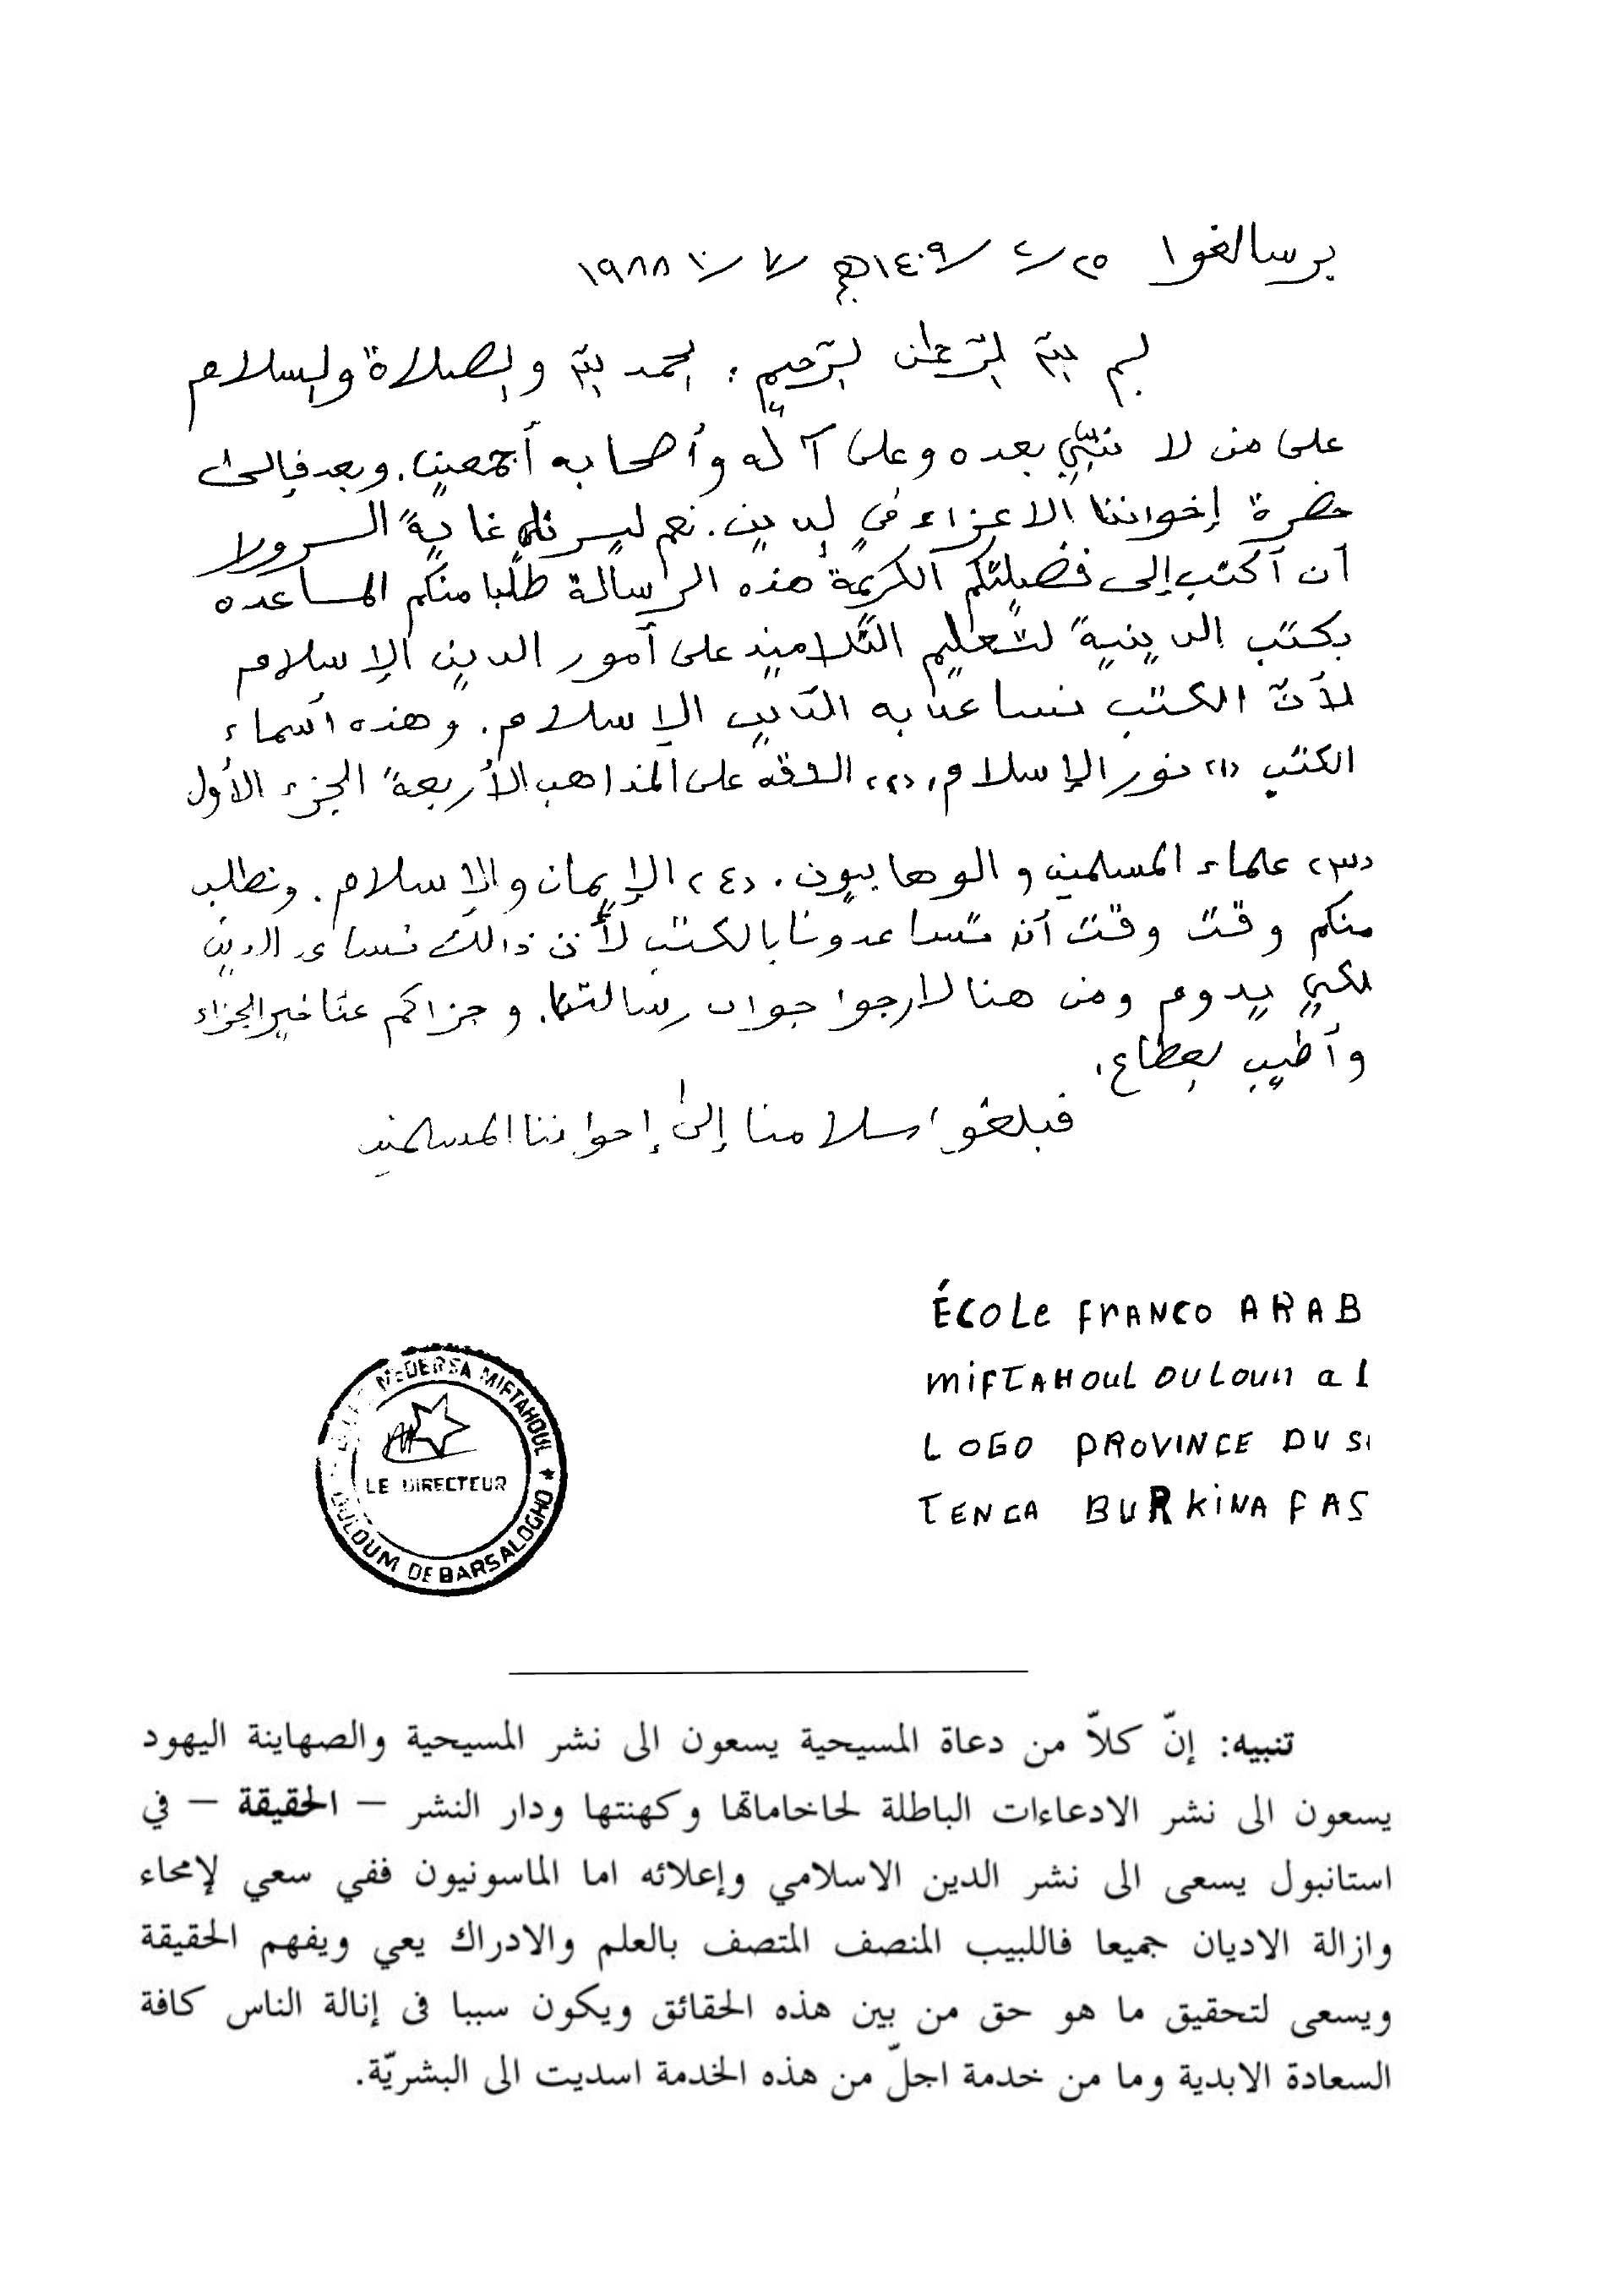 برسالغوا ٢٥/٢/١٤٠٩هـ ٧/١٠/١٩٨٨
بسم الله الرّحمٰن الرّحيم: الحمد لله والصلاة والسلام
على من لا نبيّ بعده وعلى آله وأصحابه أجمعين. وبعد فإلى
حضرة إخواننا الاعزاء في الدين. نعم ليسر غاية السرور
أن أكتب إلى فضيلتكم الكريمة هذه الرسالة طلبا منكم المساعده
بكتب الدينية لتعليم التلاميذ على أمور الدين الإسلام
لأنّ الكتب الإسلام. وهذه أسماء
الكتب (١) نور الإسلام، (٢) الفقه على المذاهب الأربعة الجزء الأول
(٣) علماء المسلمين والوهابيون. (٤) الإيمان والإسلام. ونطلب
منكم وقت وقت أن تساعدونا بالكتب لأن ذالك تساعد الدين
لكي يدوم ومن هنا لارجوا جواب رسالتنا. وجزاكم عنا خير الجزاء
وأطيب العطاء.
فبلغوا سلامنا إلى إخواننا المسلمين
ÉCOLE FRANCO ARAB
MIFTAHOUL OULOUM a
LOGO PROVINCE DU S
TENGA BURKINA FAS
MEDERSA MIFTAHOUL
LE DIRECTEUR
OULOUM DE BARSALOGHO
تنبيه: إنّ كلاّ من دعاة المسيحية يسعون الى نشر المسيحية والصهاينة اليهود
يسعون الى نشر الادعاءات الباطلة لحاخاماتها وكهنتها ودار النشر – الحقيقة – في
استانبول يسعى الى نشر الدين الاسلامي وإعلائه اما الماسونيون ففي سعي لإمحاء
وازالة الاديان جميعا فاللبيب المنصف المتصف بالعلم والادراك يعي ويفهم الحقيقة
ويسعى لتحقيق ما هو حق من بين هذه الحقائق ويكون سببا فى إنالة الناس كافة
السعادة الابدية وما من خدمة اجلّ من هذه الخدمة اسديت الى البشريّة.